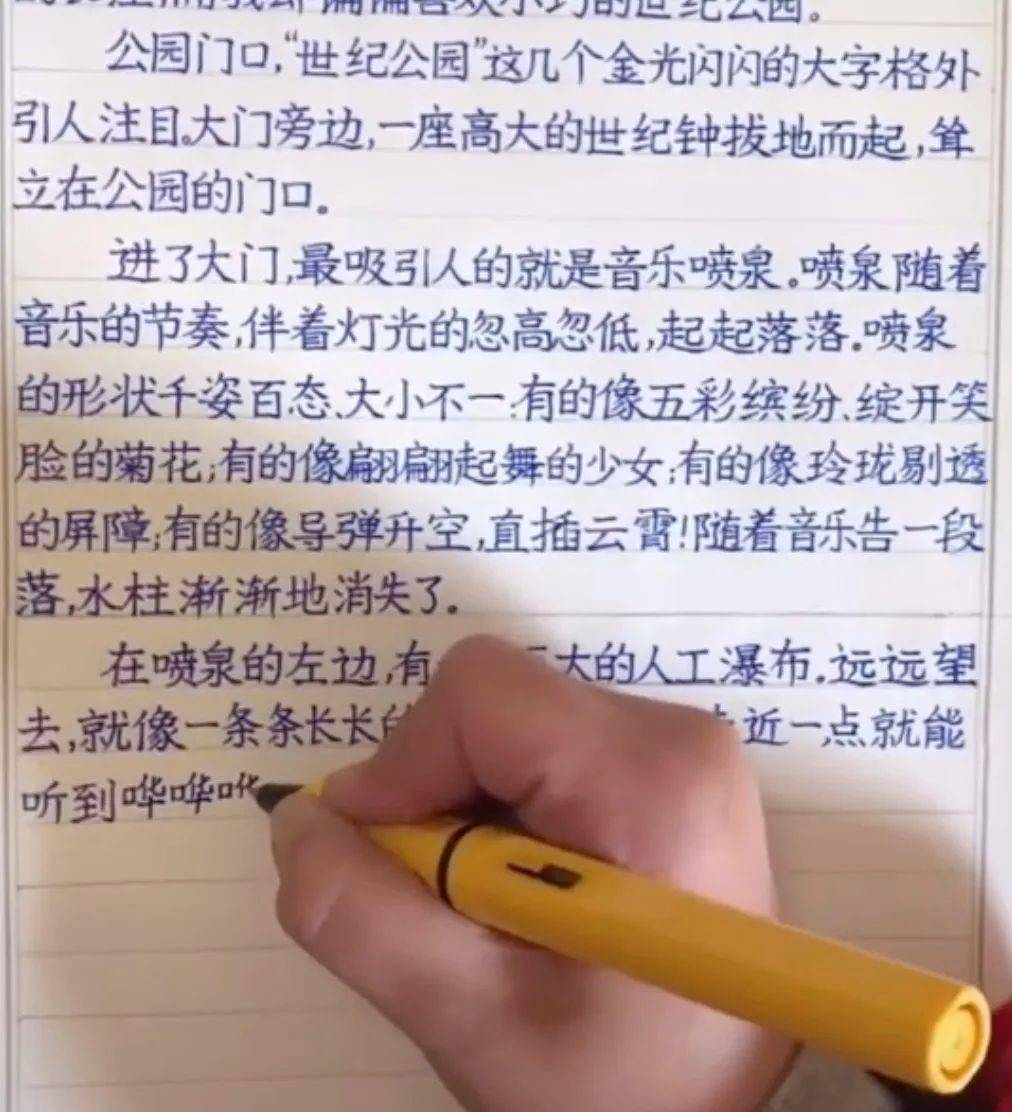 偏偏喜欢小巧的世纪公园。
公园门口,“世纪公园”这几个金光闪闪的大字格外
引人注目。大门旁边,一座高大的世纪钟拔地而起,耸
立在公园的门口。
进了大门,最吸引人的就是音乐喷泉。喷泉随着
音乐的节奏,伴着灯光的忽高忽低,起起落落。喷泉
的形状千姿百态、大小不一:有的像五彩缤纷、绽开笑
脸的菊花;有的像翩翩起舞的少女;有的像玲珑剔透
的屏障;有的像导弹升空,直插云霄!随着音乐告一段
落,水柱渐渐地消失了。
在喷泉的左边,有大的人工瀑布.远远望
去,就像一条条长长的近一点就能
听到哗哗哗